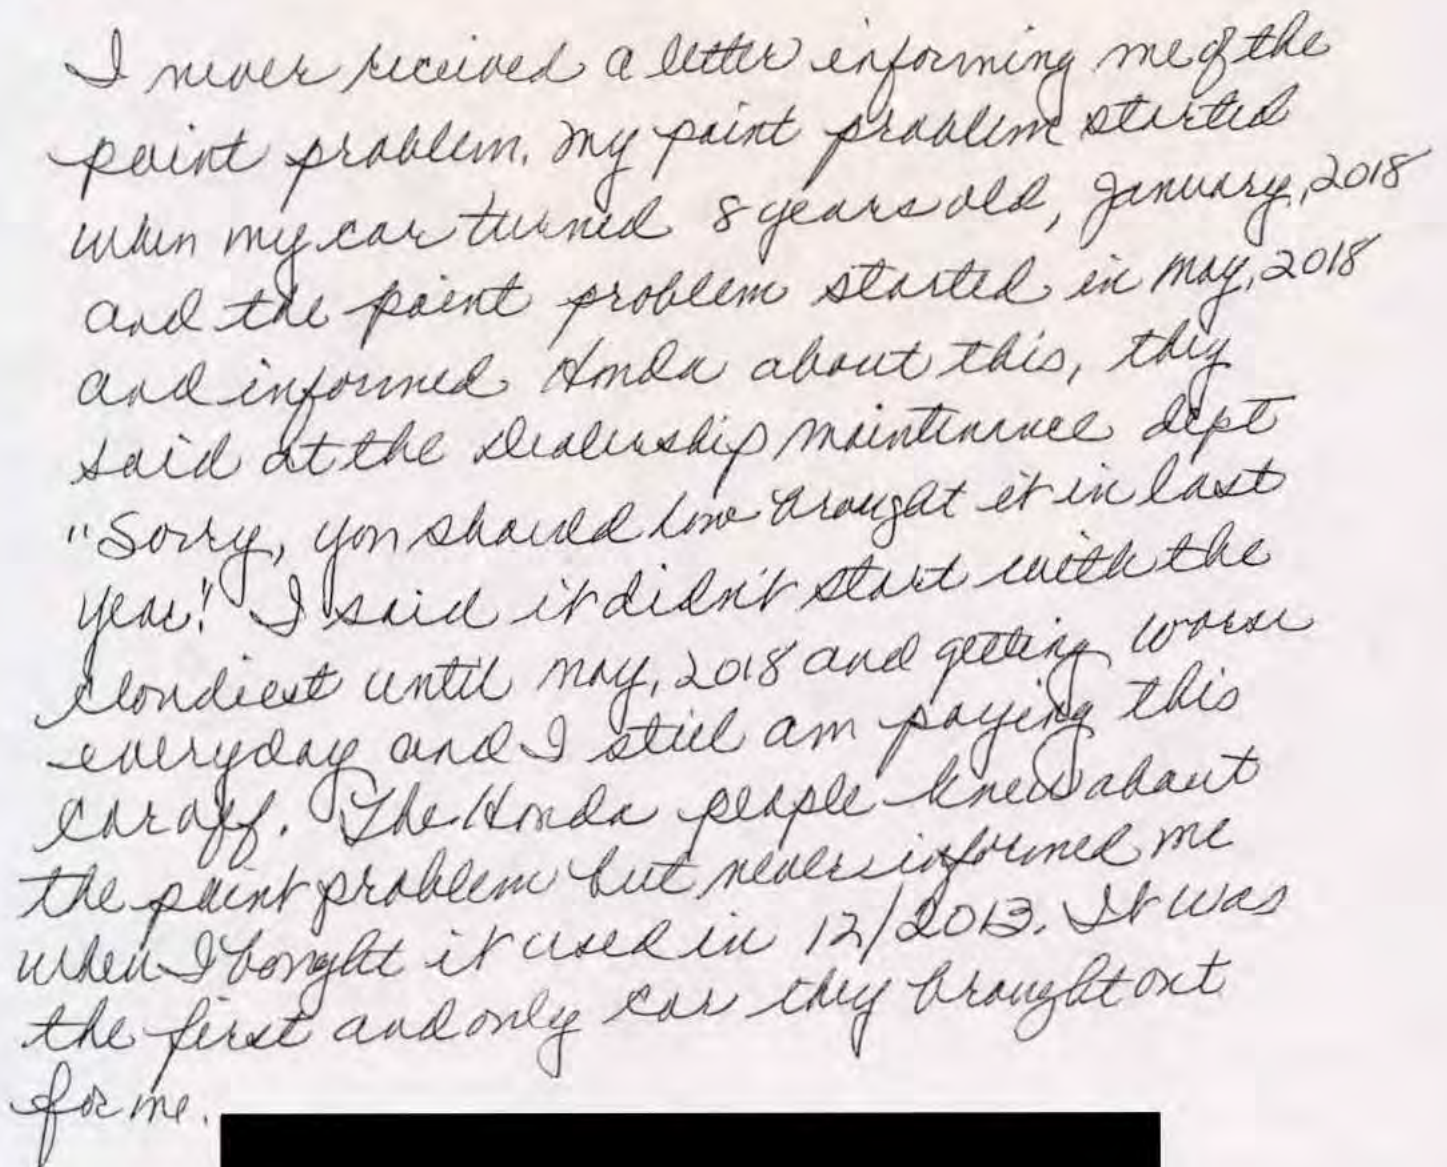 I never received a letter informing me of the
paint problem. My paint problem started
when my car turned 8 years old, January, 2018
and the paint problem started in May, 2018
and informed Honda about this, they
said at the Dealership maintenance dept
"Sorry, you should have brought it in last
year!" I said it didn't start with the
cloudiest until May, 2018 and getting worse
everyday and I still am paying this
car off. The Honda people knew about
the paint problem but never informed me
when I bought it used in 12/2013. It was
the first and only car they brought out
for me.